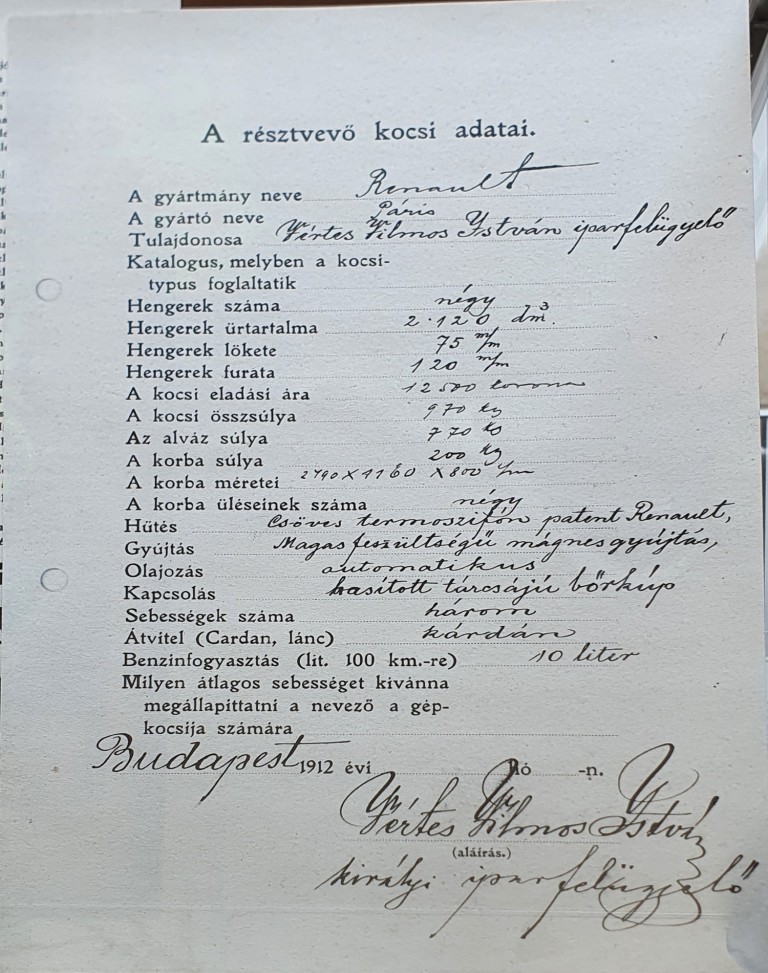 A résztvevő kocsi adatai.
A gyártmány neve Renault
A gyártó neve Páris
Tulajdonosa Vértes Vilmos István iparfelügyelő
Katalogus, melyben a kocsi-
typus foglaltatik
Hengerek száma négy
Hengerek ürtartalma 2·120 dm³.
Hengerek lökete 75 m/m
Hengerek furata 120 m/m
A kocsi eladási ára 12500 korona
A kocsi összsúlya 970 kg
Az alváz súlya 770 kg
A korba súlya 200 kg
A korba méretei X 800
A korba üléseinek száma négy
Hűtés Csöves termoszifón patent Renault,
Gyújtás Magas feszültségű mágnesgyújtás,
Olajozás automatikus
Kapcsolás hasított tárcsájú bőrkúp
Sebességek száma három
Átvitel (Cardan, lánc) kárdán
Benzinfogyasztás (lit. 100 km.-re) 10 liter
Milyen átlagos sebességet kivánna
megállapittatni a nevező a gép-
kocsija számára
Budapest 1912 évi hó -n.
Vértes Vilmos István
(aláírás.)
királyi iparfelügyelő